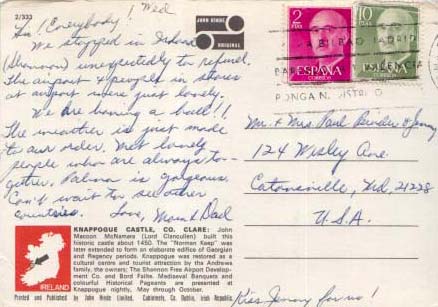 2/333
JOHN HINDE
ORIGINAL
Wed
Hi! Everybody!
We stopped in Ireland
(Shannon) unexpectedly to refuel.
The airport & people in stores
at airport were just lovely.
We are having a ball!!
The weather is just made
to our order. Met lovely
people who are always to-
gether. Palma is gorgeous.
Can't wait to see other
countries.
Love, Mom & Dad
2 PTAS
ESPAÑA
10 PTAS
ESPAÑA
BILBAO MADRID
VALENCIA
PONGA N. DISTRITO
Mr. & Mrs. Paul Binder & Jenny
124 Wesley Ave.
Catonsville, Md. 21228
U.S.A.
KNAPPOGUE CASTLE, CO. CLARE: John
Macoon McNamara (Lord Clancullen) built this
historic castle about 1450. The "Norman Keep" was
later extended to form an elaborate edifice of Georgian
and Regency periods. Knappogue was restored as a
cultural centre and tourist attraction by the Andrews
family, the owners; The Shannon Free Airport Develop-
ment Co. and Bord Failte. Mediaeval Banquets and
colourful Historical Pageants are presented at
Knappogue nightly, May through October.
IRELAND
Printed and Published by John Hinde Limited, Cabinteely, Co. Dublin, Irish Republic.
Kiss Jenny for us!